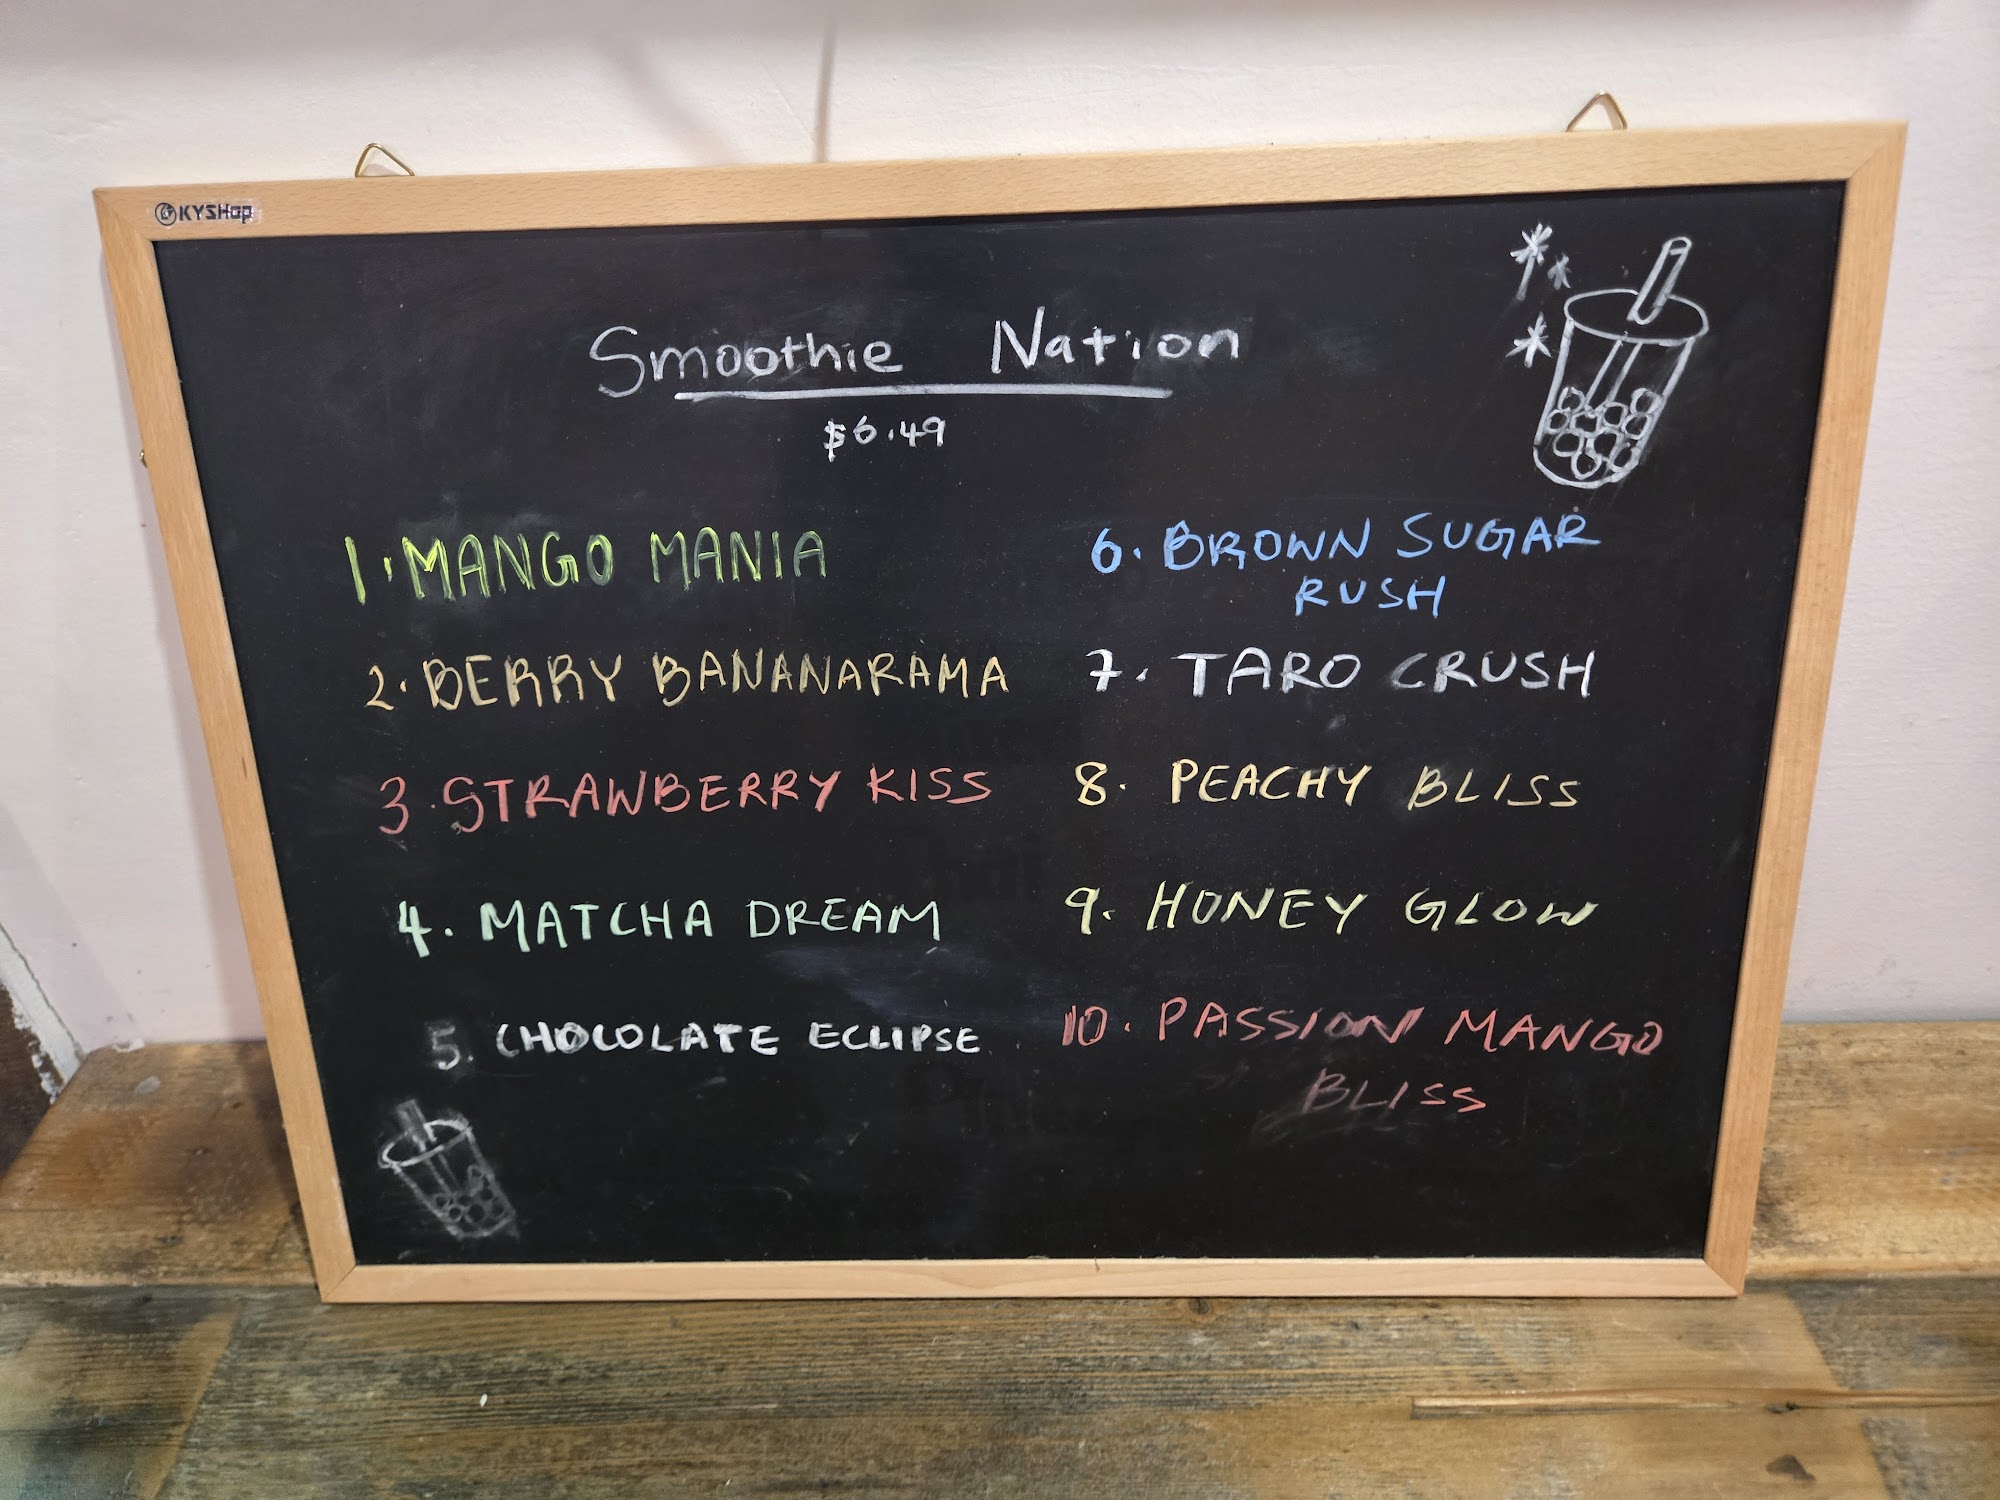 KYSHop
Smoothie Nation
$6.49
1. MANGO MANIA
2. BERRY BANANARAMA
3. STRAWBERRY KISS
4. MATCHA DREAM
5. CHOCOLATE ECLIPSE
6. BROWN SUGAR
RUSH
7. TARO CRUSH
8. PEACHY BLISS
9. HONEY GLOW
10. PASSION MANGO
BLISS